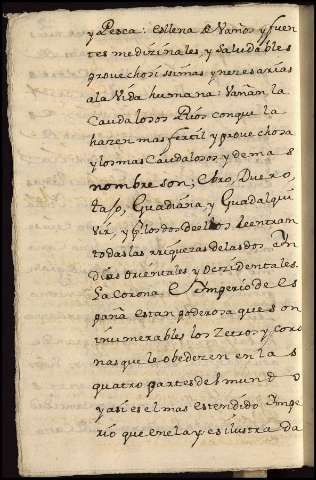 y Pesca: es llena de Vaños y fuen
tes medizinales, y saludables
provechosissimas, y nezesarias
a la Vida humana: Vañan la
Caudalosos Rios con que la
hazen mas fertil y provechosa
y los mas Caudalosos y de mas
nombre son; Ebro, Duero,
taJo, Guadiana, y Guadalqui
vir, y
todas las rriquezas de las dos In
dias orientales y Oczidentales.
La Corona e Imperio de Es
paña es tan poderosa que son
innumerables los Zetros, y coro
nas que le obedezen en las
quatro partes del mundo
y asi es el mas estendido Impe
rio que en ella y es ilustrada